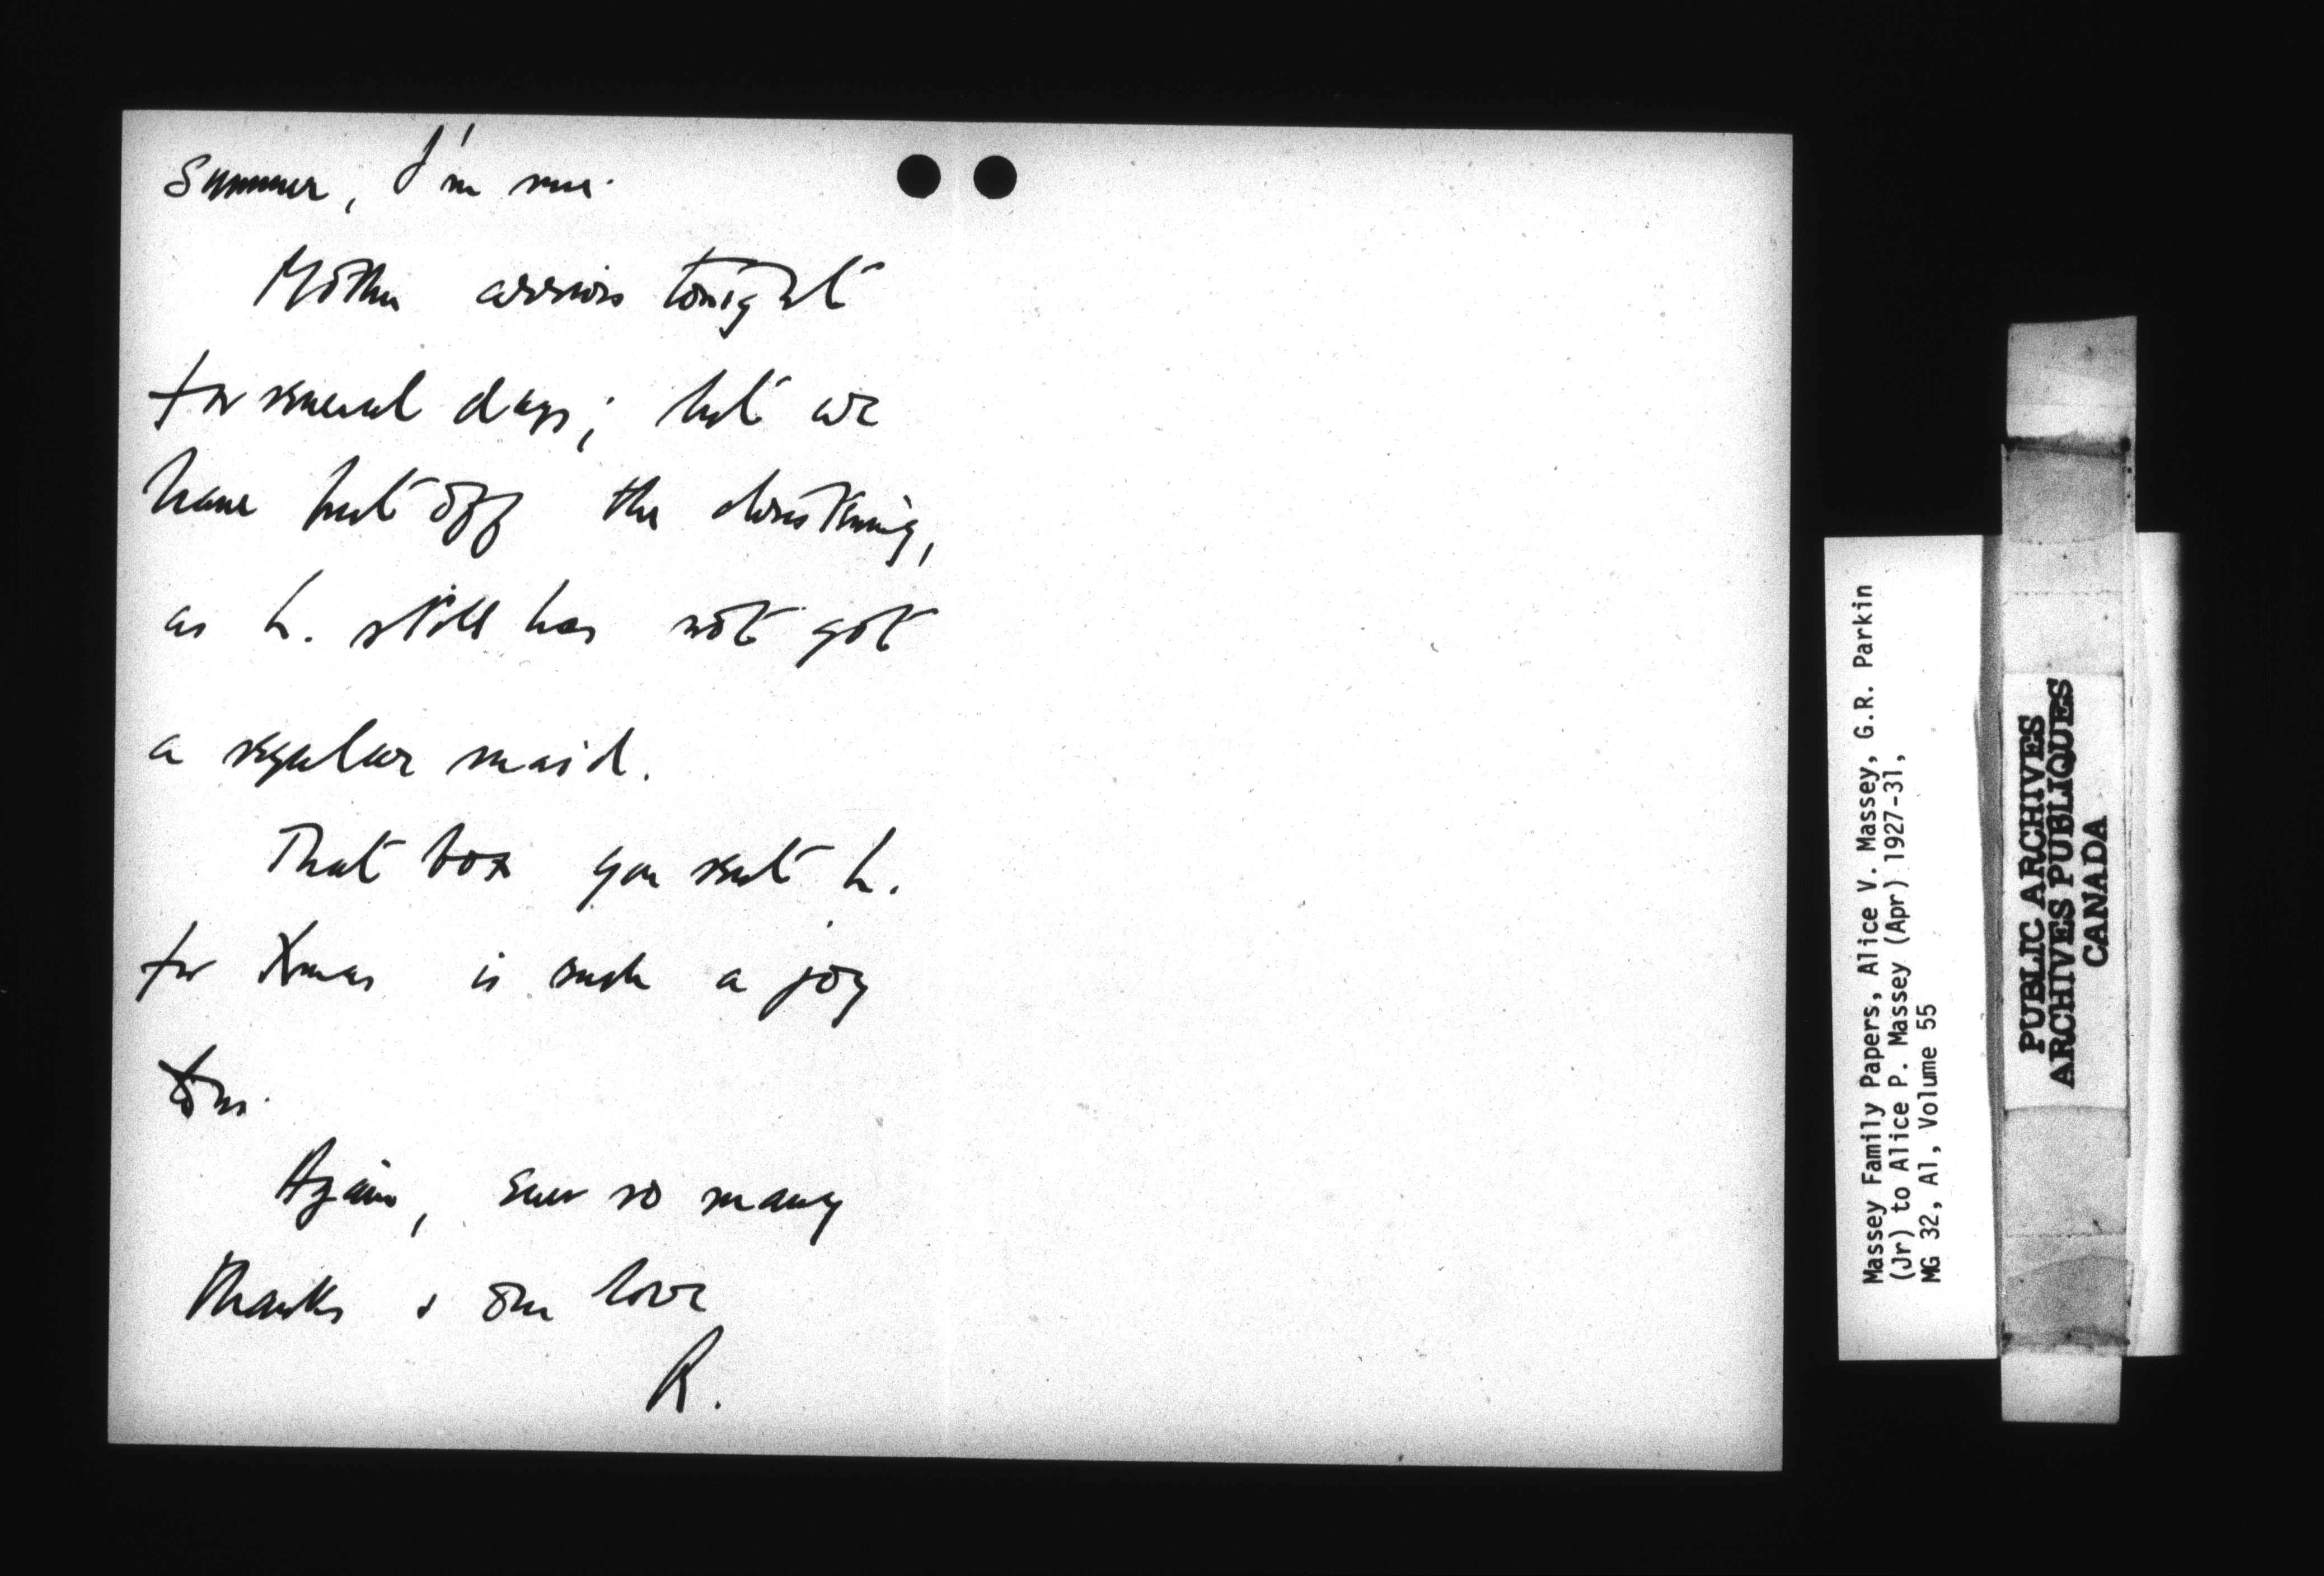 Summer, I'm sure.
Mother arrives tonight
for several days; but we
have put off the christening,
as L. still has not got
a regular maid.
That box you sent L.
for Xmas is such a joy
to us.
Again, ever so many
thanks & our love
R.
Massey Family Papers, Alice V. Massey, G.R. Parkin
(Jr) to Alice P. Massey (Apr) 1927-31,
MG 32, A1, Volume 55
PUBLIC ARCHIVES
ARCHIVES PUBLIQUES
CANADA